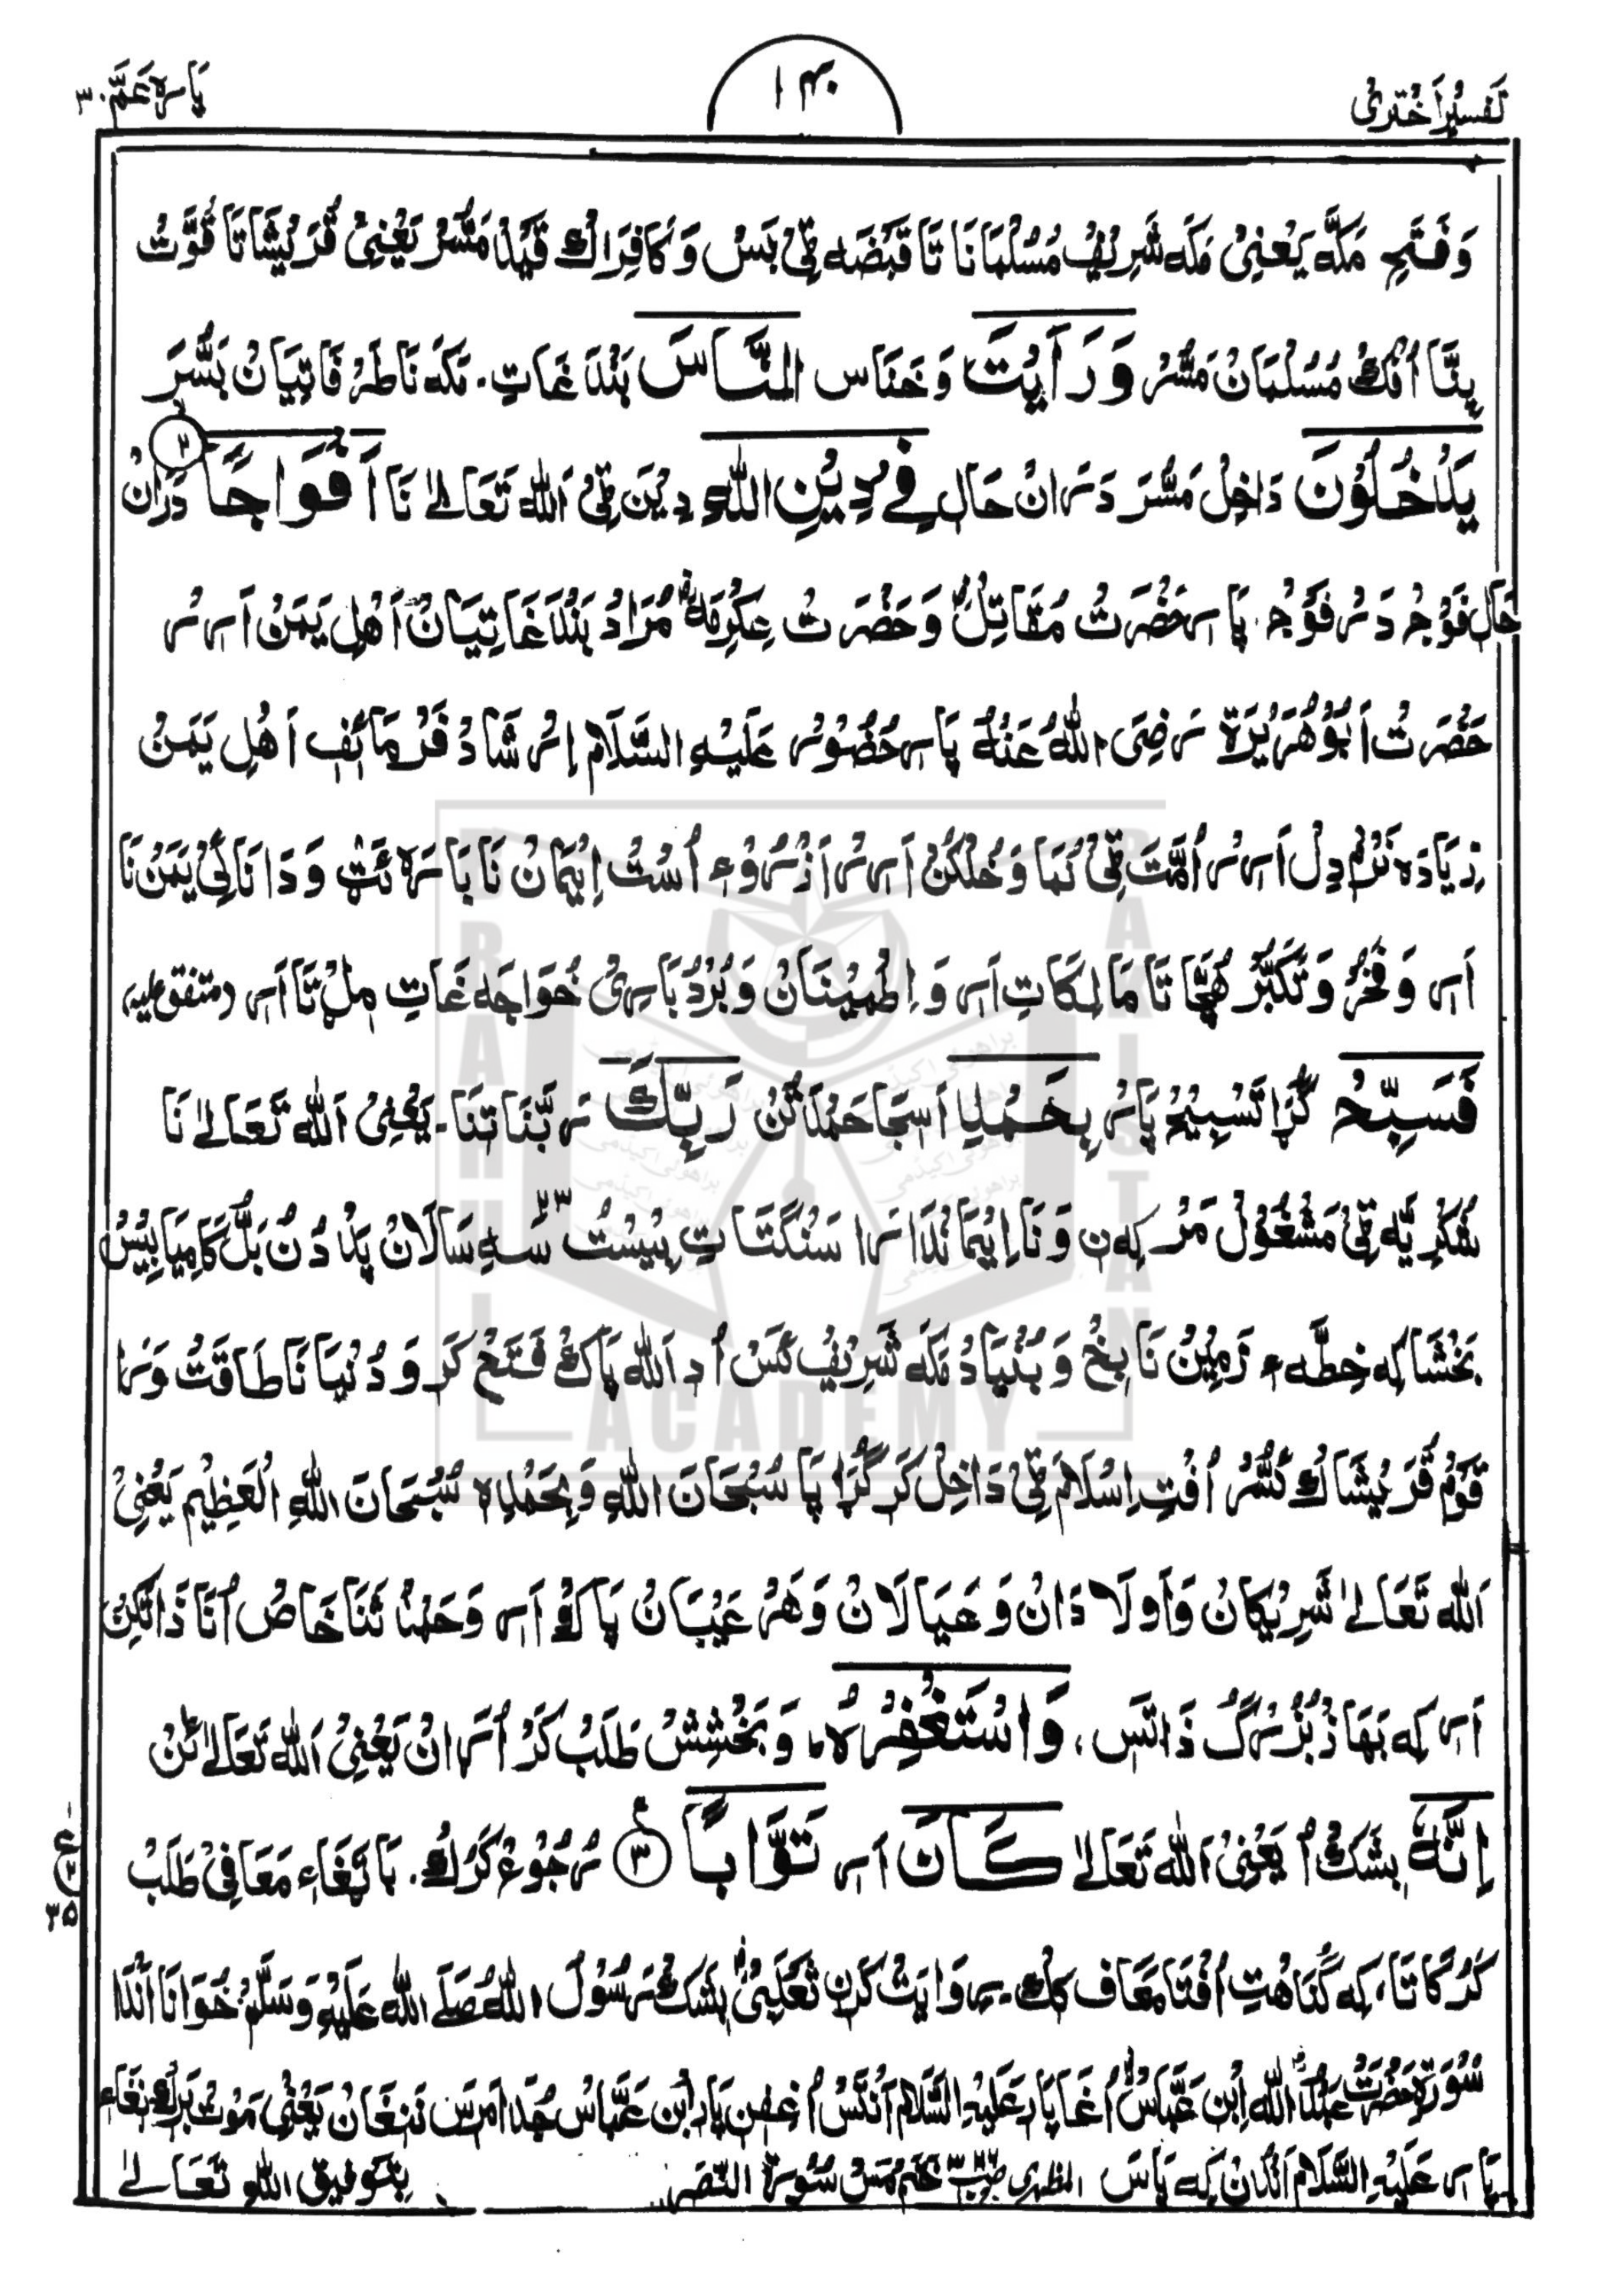 تَفسِیْرِ اَخْتَرِیْ
۱۴۰
پَارہ عَمَّ ۳۰
وَفَتَحِ مَکَّہ یَعْنِیْ مَکَہ شَرِیْفْ مُسُلْمَانَا تَا قَبْضَہ ٹِیْ بَسْ وَ کَافِرَاکْ قَیْدْ مَسُّرْ یَعْنِیْ قُرَیْشَا تَا قُوَّتْ
مُسُلْمَانْ مَسُّرْ وَرَاَیْتَ وَ خَنَاس النَّاسَ بَنْدَغَاتِ۔ مَکَہ نَا
یَدْخُلُوْنَ دَاخِلْ مَسُّرَ دَرَانْ حَالِ فِیْ دِیْنِ اللّٰهِ دِیْنَ ٹِیْ اَللّٰه تَعَالےٰ نَا اَفْوَاجًا ۲ دَرَانْ
حَالِ فَوْجْ دَرْ فَوْجْ۔ پَارِ حَضْرَتْ مُقَاتِلْ وَحَضْرَتْ عِکْرِمَہ مُرَادْ بَنْدَغَاتِیَانْ اَهْلِ یَمَنْ اَرِرْ
حَضْرَتْ اَبُوْهُرَیْرَۃ رَضِیَ اللّٰهُ عَنْهُ پَارِ حُضُوْرْ عَلَیْهِ السَّلَام اِرْشَادْ فَرْمَائِفِ اَهْلِ یَمَنْ
زِیَادَہ نَرْم دِلْ اَرِرْ اُمَّتَ ٹِیْ کَنَا وَخُلْکُنْ اَرِرْ اُسْتْ اِیْمَانْ نَا وَ دَانَائِیْ یَمَنْ نَا
اَرِ وَ فَخْرْ وَ تَکَبُّرْ هُچَّا تَا مَالِکَاتِ اَرِ وَ اِطْمِیْنَانْ وَ بُرْدُبَارِیْ خُوَاجَہ غَاتِ مِلْ تَا اَرِ (متفق علیہ
فَسَبِّحْ گُڑَا تَسْبِیْحْ پَارْ بِحَمْدِ حَمْدَ تُنْ رَبِّكَ رَبَّنَا تِنَا۔ یَعْنِیْ اَللّٰه تَعَالےٰ نَا
شُکْرِیَّہ ٹِیْ مَشْغُوْل مَرْ کِہ نِ وَ نَا اِیْمَانْدَارَا سَنْگَتَاتِ بِیْسْتُ سِہ سَالَانْ پَدْ دُنْ بَلَّ کَامِیَابِیْسْ
بَخْشَا کِہ خِطَّہء زَمِیْنْ نَا بِیْخْ وَ بُنْیَادْ مَکَہ شَرِیْفْ ءَسْ اُدِ اَللّٰه پَاکْ فَتَحْ کَرِ وَ دُنْیَا نَا طَاقَتْ وَرَا
قَوْمْ قُرَیْشَاکْ اُفْتِ اِسْلَام ٹِیْ دَاخِلْ کَرِ گُڑَا پَا سُبْحَانَ اللّٰهِ وَبِحَمْدِہٖ سُبْحَانَ اللّٰهِ الْعَظِیْمِ یَعْنِیْ
اَللّٰه تَعَالےٰ شَرِیْکَانْ وَ اَوْلَادَانْ وَ عَیَالَانْ وَ هَرْ عَیْبَانْ پَاکْ اَرِ وَ حَمْدْ ثَنَا خَاصْ اُنَا ذَاتْکِنْ
اَرِ کِہ بَهَازْ بُزْرُگْ ذَاتَس۔ وَاسْتَغْفِرْهُ ؕ وَ بَخْشِشْ طَلَبْ کَرْ اُرَانْ یَعْنِیْ اَللّٰه تَعَالےٰ ئَنْ
اِنَّهٗ بِشَکْ اُ یَعْنِیْ اَللّٰه تَعَالےٰ كَانَ اَرِ تَوَّابًا ۳ رُجُوْعْ کَرُکْ۔ مَعَافِیْ طَلَبْ
کَرُکَا تَا، کِہ گُنَاهتِ اُفْتَا مَعَاف کِکْ۔ رِوَایَتْ کَرِ ثَعْلَبِیْ بِشَکْ رَسُوْلَ اللّٰهُ صَلَے اللّٰه عَلَیْهِ وَسَلَّمْ خُوَانَا
سُوْرَۃ حَضْرَتْ عَبْدُ اللّٰه اِبْنِ عَبَّاسْ عَلَیْهِ السَّلَام پَارِ اِبْنِ عَبَّاسْ یَعْنِیْ مَوْتْ
پَارِ عَلَیْهِ السَّلَام کِہ پَاسَ المظہری خَتَم مَسْ سُوْرَۃ النَّصَر بِتَوْفِیْقِ اللّٰهِ تَعَالےٰ
ع
۳۵
BRAHUI
ACADEMY
PAKISTAN